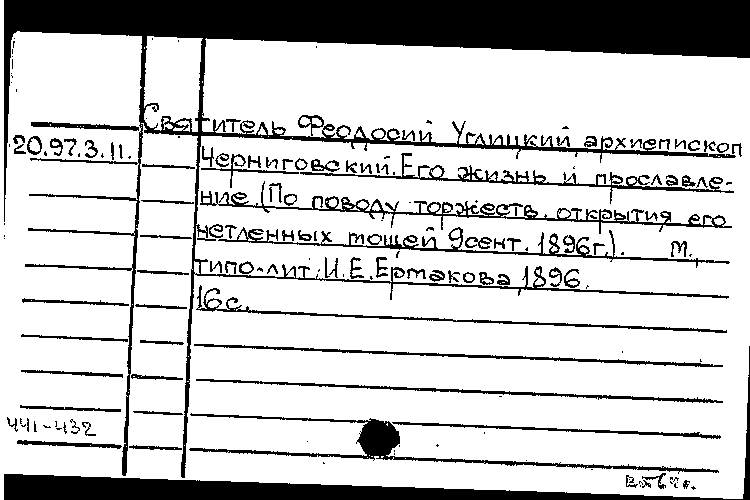 Святитель Феодосий Углицкий, архиепископ
20.97.3.11. Черниговский. Его жизнь и прославле-
ние. (По поводу торжеств. открытия его
нетленных мощей 9 сент. 1896 г.). М.,
типо-лит. И.Е.Ермакова, 1896.
16 с.
441-432